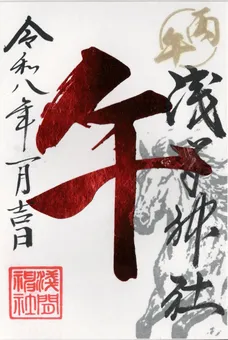 丙午
浅間神社
午
令和八年一月吉日
浅間
神社